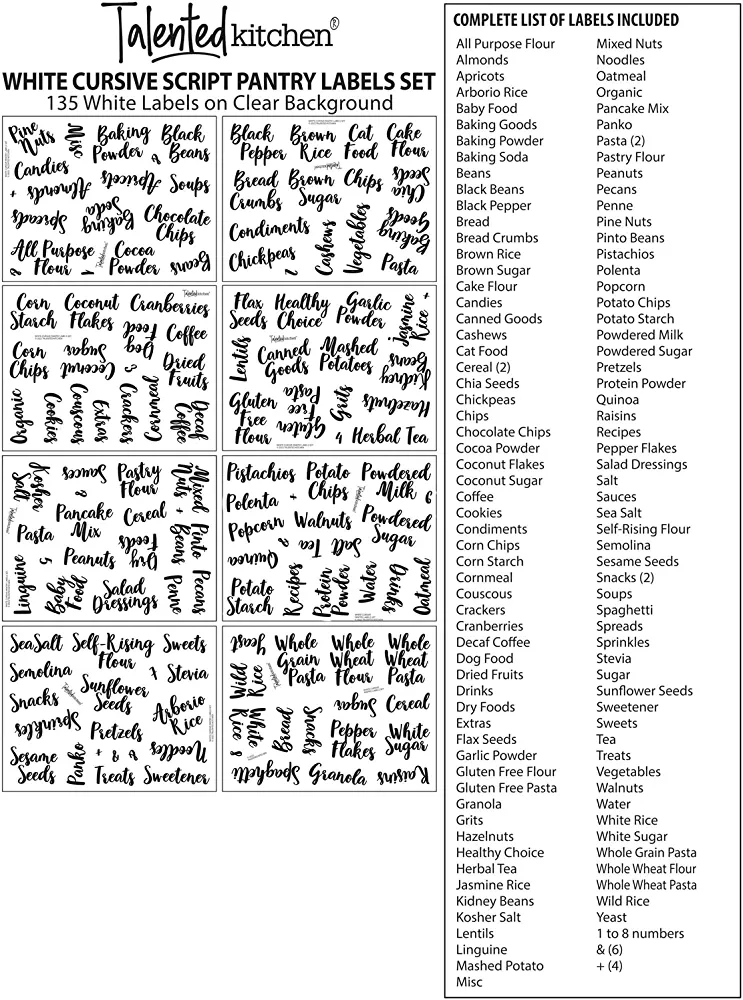 Talented kitchen®
WHITE CURSIVE SCRIPT PANTRY LABELS SET
135 White Labels on Clear Background
Pine Nuts
Misc
Baking Powder
Black Beans
Candies
+
Almonds
Apricots
&
Soups
Spreads
Baking Soda
Chocolate Chips
All Purpose Flour
Cocoa Powder
Beans
Black Pepper
Brown Rice
Cat Food
Cake Flour
Bread Crumbs
Brown Sugar
Chips
Chia Seeds
Condiments
Cashews
Vegetables
Baking Goods
Chickpeas
2
Pasta
Corn Starch
Coconut Flakes
Cranberries
Dog Food
Coffee
Corn Chips
Coconut Sugar
Dried Fruits
Organic
Cookies
Couscous
Extras
Crackers
Cornmeal
Decaf Coffee
Flax Seeds
Healthy Choice
Garlic Powder
Jasmine Rice
+
Lentils
Canned Goods
Mashed Potatoes
Kidney Beans
Gluten Free Flour
Gluten Free Pasta
Grits
Hazelnuts
4
Herbal Tea
Kosher Salt
Sauces
Pastry Flour
Mixed Nuts
Pasta
Pancake Mix
Cereal
+
Pinto Beans
Linguine
5
Peanuts
Dry Foods
Baby Food
Salad Dressings
Penne
Pecans
Pistachios
Potato Chips
Powdered Milk
6
Polenta
+
Popcorn
Walnuts
Powdered Sugar
Quinoa
&
Tea
Salt
Potato Starch
Recipes
Protein Powder
Water
Drinks
Oatmeal
Sea Salt
Self-Rising Flour
Sweets
Semolina
7
Stevia
Snacks
Sunflower Seeds
Arborio Rice
Sprinkles
Pretzels
Noodles
Sesame Seeds
Panko
+ & &
Treats
Sweetener
Yeast
Whole Grain Pasta
Whole Wheat Flour
Whole Wheat Pasta
Wild Rice
Sugar
Cereal
White Rice
8
Bread
Snacks
Pepper Flakes
White Sugar
Spaghetti
Granola
Raisins
COMPLETE LIST OF LABELS INCLUDED
All Purpose Flour
Almonds
Apricots
Arborio Rice
Baby Food
Baking Goods
Baking Powder
Baking Soda
Beans
Black Beans
Black Pepper
Bread
Bread Crumbs
Brown Rice
Brown Sugar
Cake Flour
Candies
Canned Goods
Cashews
Cat Food
Cereal (2)
Chia Seeds
Chickpeas
Chips
Chocolate Chips
Cocoa Powder
Coconut Flakes
Coconut Sugar
Coffee
Cookies
Condiments
Corn Chips
Corn Starch
Cornmeal
Couscous
Crackers
Cranberries
Decaf Coffee
Dog Food
Dried Fruits
Drinks
Dry Foods
Extras
Flax Seeds
Garlic Powder
Gluten Free Flour
Gluten Free Pasta
Granola
Grits
Hazelnuts
Healthy Choice
Herbal Tea
Jasmine Rice
Kidney Beans
Kosher Salt
Lentils
Linguine
Mashed Potato
Misc
Mixed Nuts
Noodles
Oatmeal
Organic
Pancake Mix
Panko
Pasta (2)
Pastry Flour
Peanuts
Pecans
Penne
Pine Nuts
Pinto Beans
Pistachios
Polenta
Popcorn
Potato Chips
Potato Starch
Powdered Milk
Powdered Sugar
Pretzels
Protein Powder
Quinoa
Raisins
Recipes
Pepper Flakes
Salad Dressings
Salt
Sauces
Sea Salt
Self-Rising Flour
Semolina
Sesame Seeds
Snacks (2)
Soups
Spaghetti
Spreads
Sprinkles
Stevia
Sugar
Sunflower Seeds
Sweetener
Sweets
Tea
Treats
Vegetables
Walnuts
Water
White Rice
White Sugar
Whole Grain Pasta
Whole Wheat Flour
Whole Wheat Pasta
Wild Rice
Yeast
1 to 8 numbers
& (6)
+ (4)